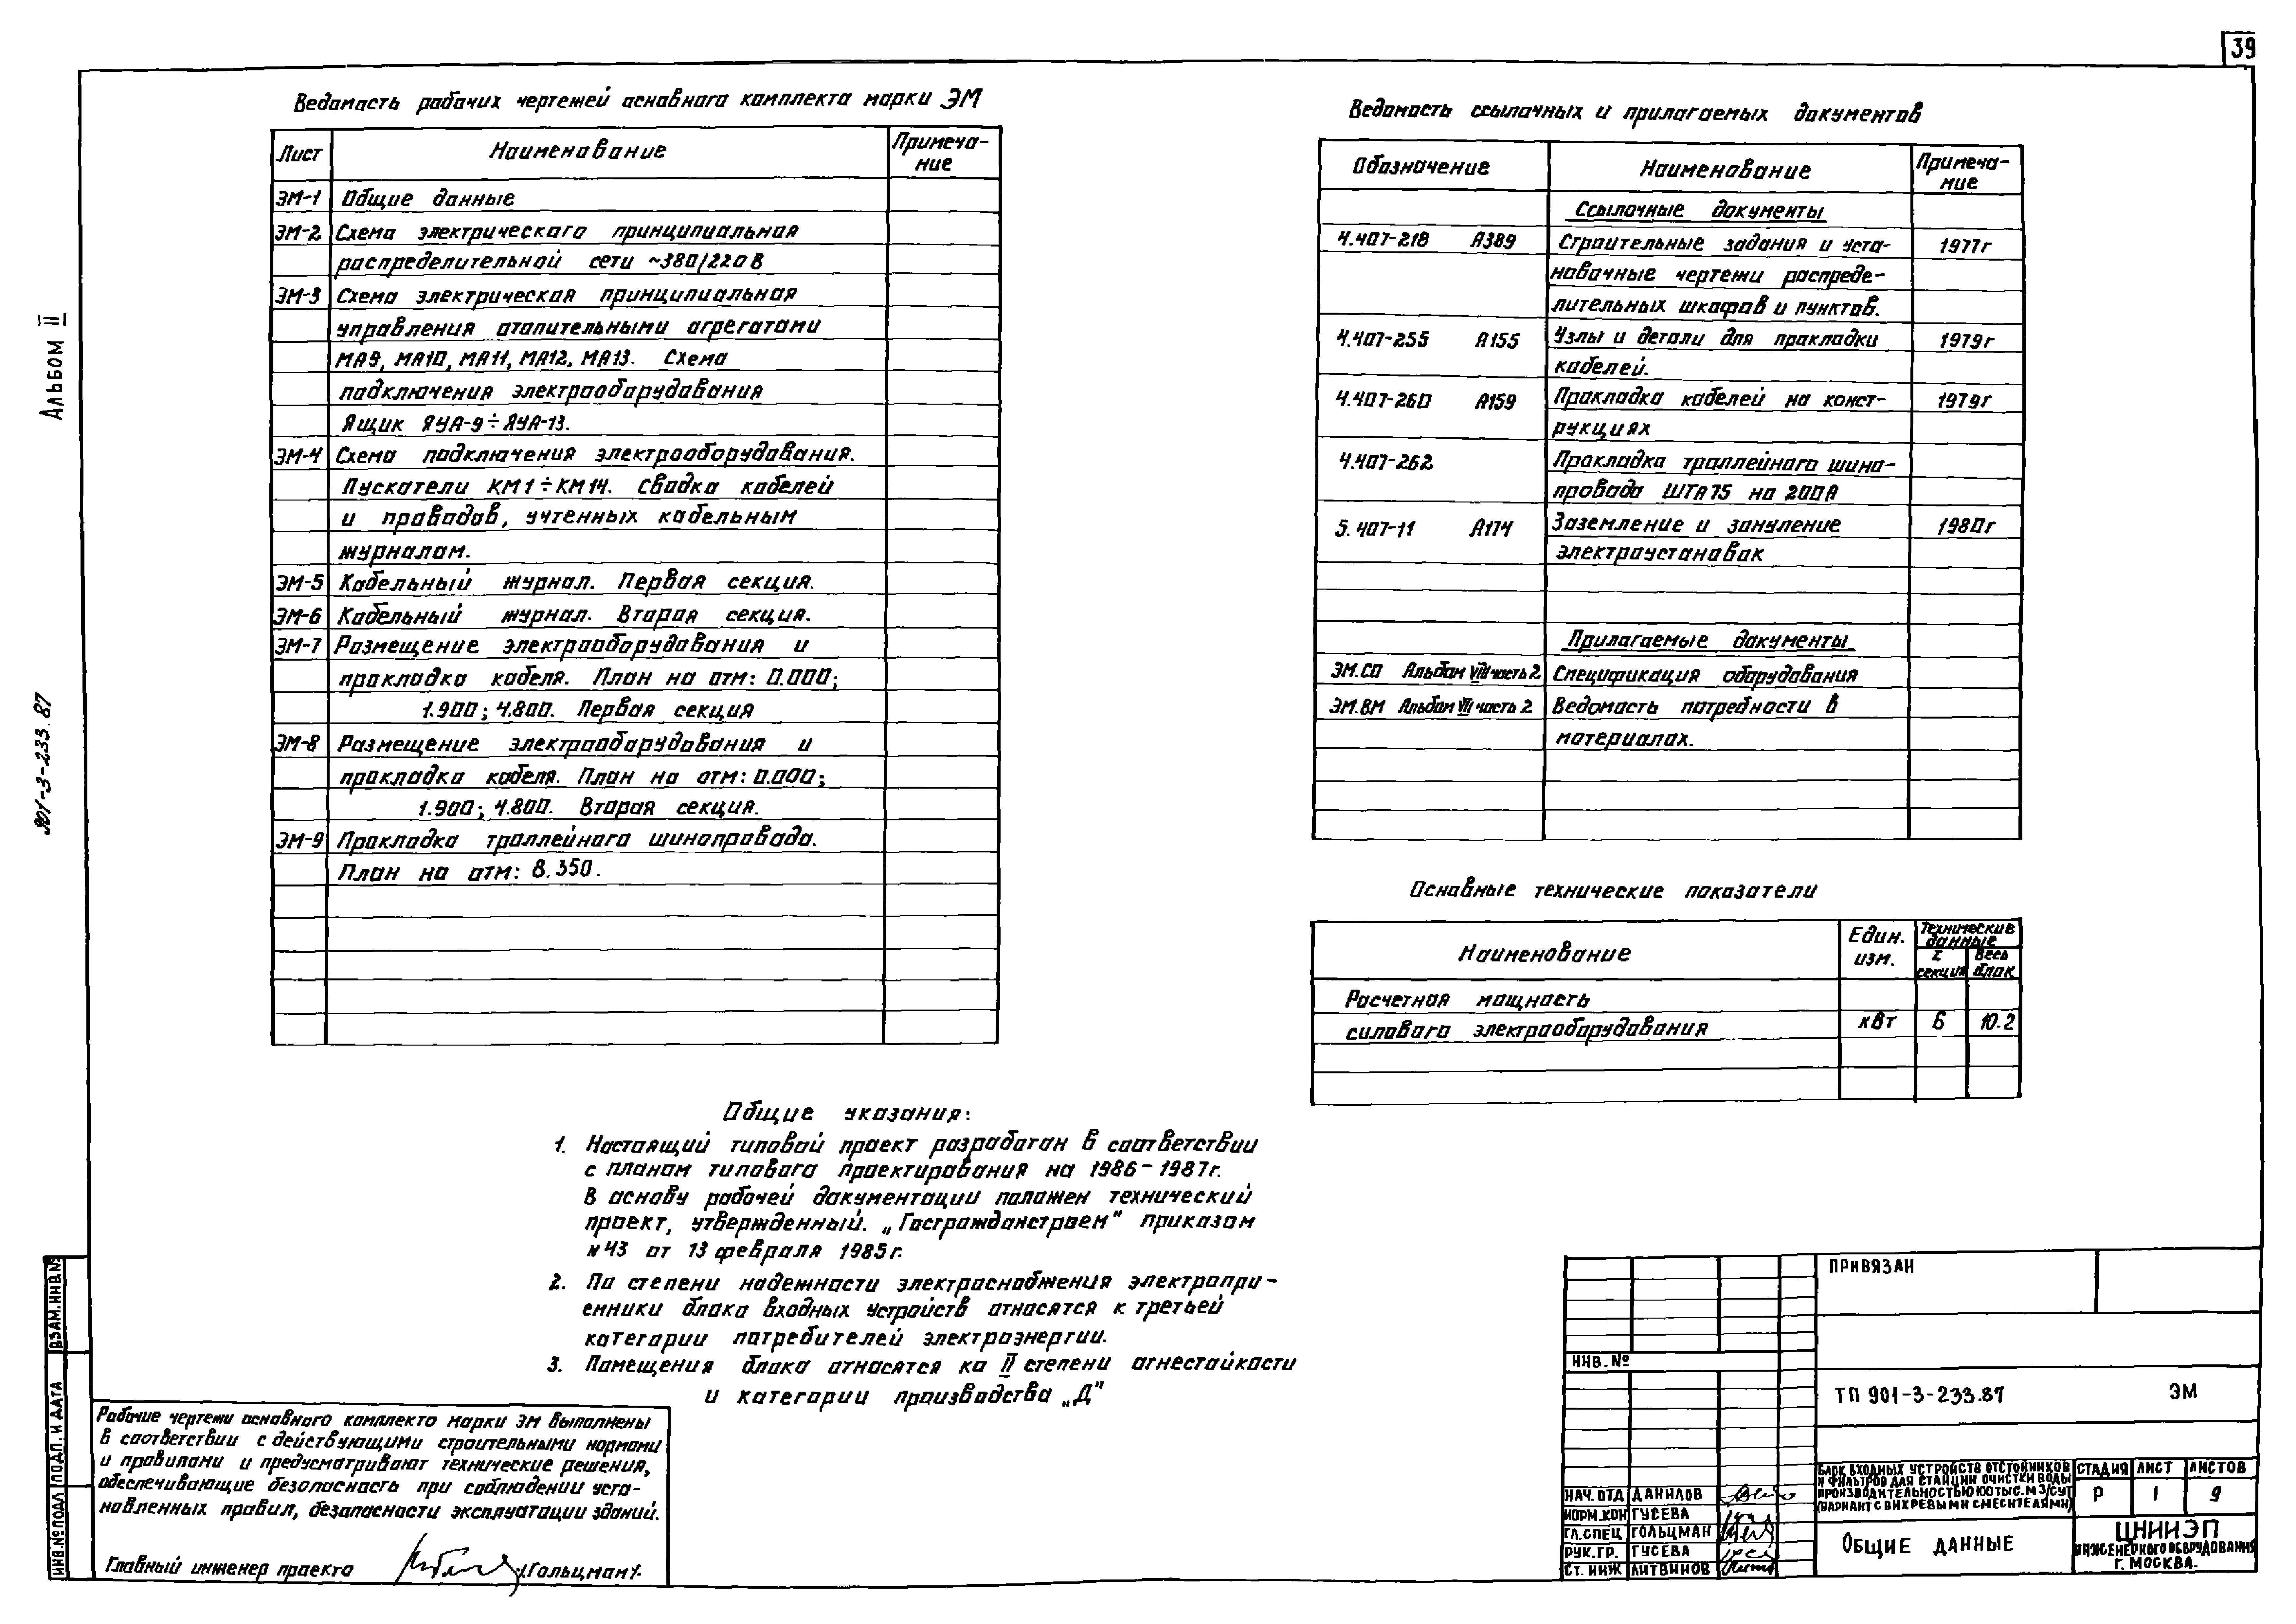 39
Альбом II
901-3-233.87
Ведомость рабочих чертежей основного комплекта марки ЭМ
Лист
Наименование
Примеча-
ние
ЭМ-1 Общие данные
ЭМ-2 Схема электрического принципиальная
распределительной сети ~380/220В
ЭМ-3 Схема электрическая принципиальная
управления отопительными агрегатами
МА9, МА10, МА11, МА12, МА13. Схема
подключения электрооборудования
Ящик ЯУА-9÷ЯУА-13.
ЭМ-4 Схема подключения электрооборудования.
Пускатели КМ1÷КМ14. Сводка кабелей
и проводов, учтенных кабельным
журналом.
ЭМ-5 Кабельный журнал. Первая секция.
ЭМ-6 Кабельный журнал. Вторая секция.
ЭМ-7 Размещение электрооборудования и
прокладка кабеля. План на отм: 0.000;
1.900; 4.800. Первая секция
ЭМ-8 Размещение электрооборудования и
прокладка кабеля. План на отм: 0.000;
1.900; 4.800. Вторая секция.
ЭМ-9 Прокладка троллейного шинопровода.
План на отм: 8.350.
Ведомость ссылочных и прилагаемых документов
Обозначение
Наименование
Примеча-
ние
Ссылочные документы
4.407-218 А389 Строительные задания и уста- 1977г
новочные чертежи распреде-
лительных шкафов и пунктов.
4.407-255 А155 Узлы и детали для прокладки 1979г
кабелей.
4.407-260 А159 Прокладка кабелей на конст- 1979г
рукциях
4.407-262 Прокладка троллейного шино-
провода ШТА75 на 200А
5.407-11 А174 Заземление и зануление 1980г
электроустановок
Прилагаемые документы
ЭМ.СО Альбом VIII часть 2 Спецификация оборудования
ЭМ.ВМ Альбом VII часть 2 Ведомость потребности в
материалах.
Основные технические показатели
Наименование
Един.
изм.
Технические
данные
I
секция
Весь
блок
Расчетная мощность
силового электрооборудования кВт 6 10.2
Общие указания:
1. Настоящий типовой проект разработан в соответствии
с планом типового проектирования на 1986-1987г.
В основу рабочей документации положен технический
проект, утвержденный. „Госгражданстроем" приказом
№43 от 13 февраля 1985г.
2. По степени надежности электроснабжения электропри-
емники блока входных устройств относятся к третьей
категории потребителей электроэнергии.
3. Помещения блока относятся ко II степени огнестойкости
и категории производства „Д"
Рабочие чертежи основного комплекта марки ЭМ выполнены
в соответствии с действующими строительными нормами
и правилами и предусматривают технические решения,
обеспечивающие безопасность при соблюдении уста-
новленных правил, безопасности эксплуатации зданий.
Главный инженер проекта /Гольцман/.
ВЗАМ.ИНВ.№
ПОДП. И ДАТА
ИНВ.№ПОДЛ
ПРИВЯЗАН
ИНВ.№
ТП 901-3-233.87 ЭМ
НАЧ.ОТД ДАНИЛОВ
НОРМ.КОН ГУСЕВА
ГЛ.СПЕЦ ГОЛЬЦМАН
РУК.ГР. ГУСЕВА
СТ.ИНЖ ЛИТВИНОВ
БЛОК ВХОДНЫХ УСТРОЙСТВ ОТСТОЙНИКОВ
И ФИЛЬТРОВ ДЛЯ СТАНЦИИ ОЧИСТКИ ВОДЫ
ПРОИЗВОДИТЕЛЬНОСТЬЮ 100 ТЫС. М3/СУТ
(ВАРИАНТ С ВИХРЕВЫМИ СМЕСИТЕЛЯМИ)
СТАДИЯ ЛИСТ ЛИСТОВ
Р 1 9
ОБЩИЕ ДАННЫЕ
ЦНИИЭП
ИНЖЕНЕРНОГО ОБОРУДОВАНИЯ
Г. МОСКВА.